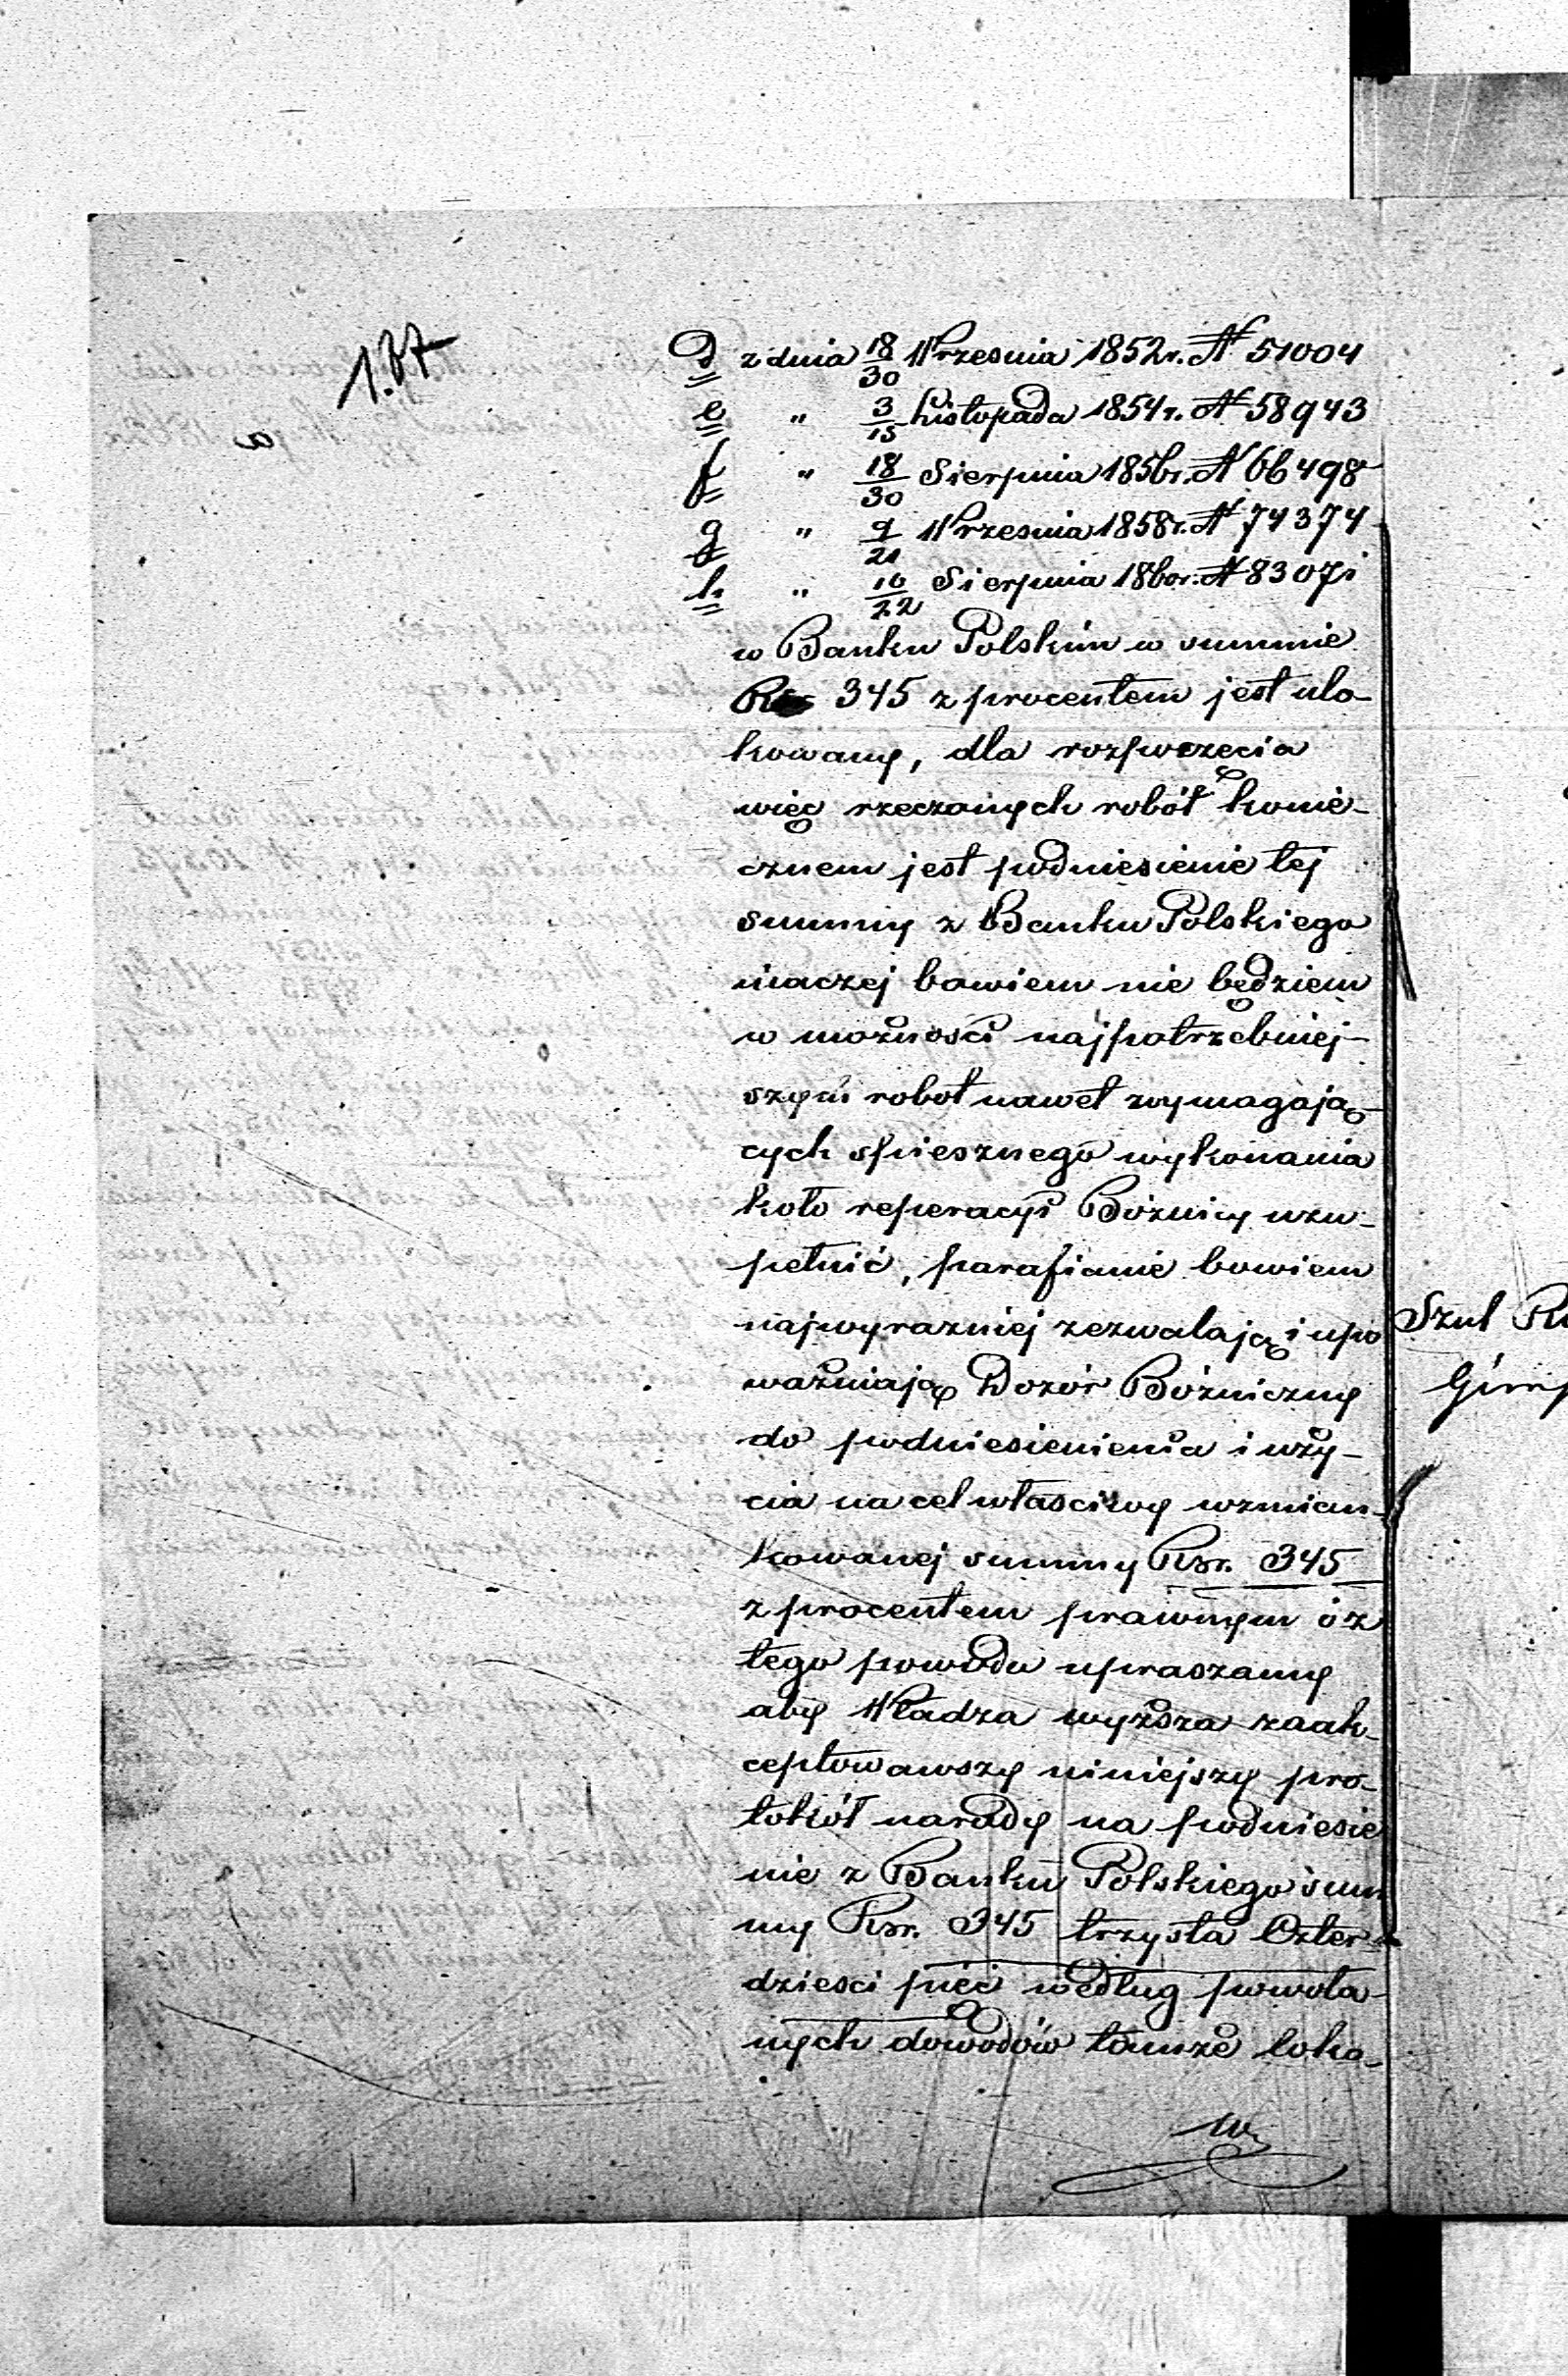 137
d z dnia 18/30 Wrzesnia 1852 r. N 51004
e " 3/15 Listopada 1854 r. N 58943
f " 18/30 Sierpnia 1856 r. N 66498
g " 9/21 Wrzesnia 1858 r. N 74374
h " 10/22 Sierpnia 1860 r. N 83071
w Banku Polskim w summie
Rs 345 z procentem jest ulo-
kowany, dla rozpoczęcia
więc rzeczonych robót konie-
cznem jest podniesienie tej
summy z Banku Polskiego
inaczej bowiem nie będziem
w możności najpotrzebniej-
szych robot nawet wymagają-
cych spiesznego wykonania
koło reperacyi Bożnicy uzu-
pełnić, parafianie bowiem
najwyrazniej zezwalają i upo
ważniają Dozór Bóżniczny
do podniesienienia i uży-
cia na cel właściwy wzmian-
kowanej summy Rsr. 345
z procentem prawnym i z
tego powodu upraszamy
aby Władza wyższa zaak-
ceptowawszy niniejszy pro-
tokół narady na podniesie
nie z Banku Polskiego sum
my Rsr. 345 trzysta Czter-
dziesci pięć według powoła-
nych dowodów tamże loko-
Szul